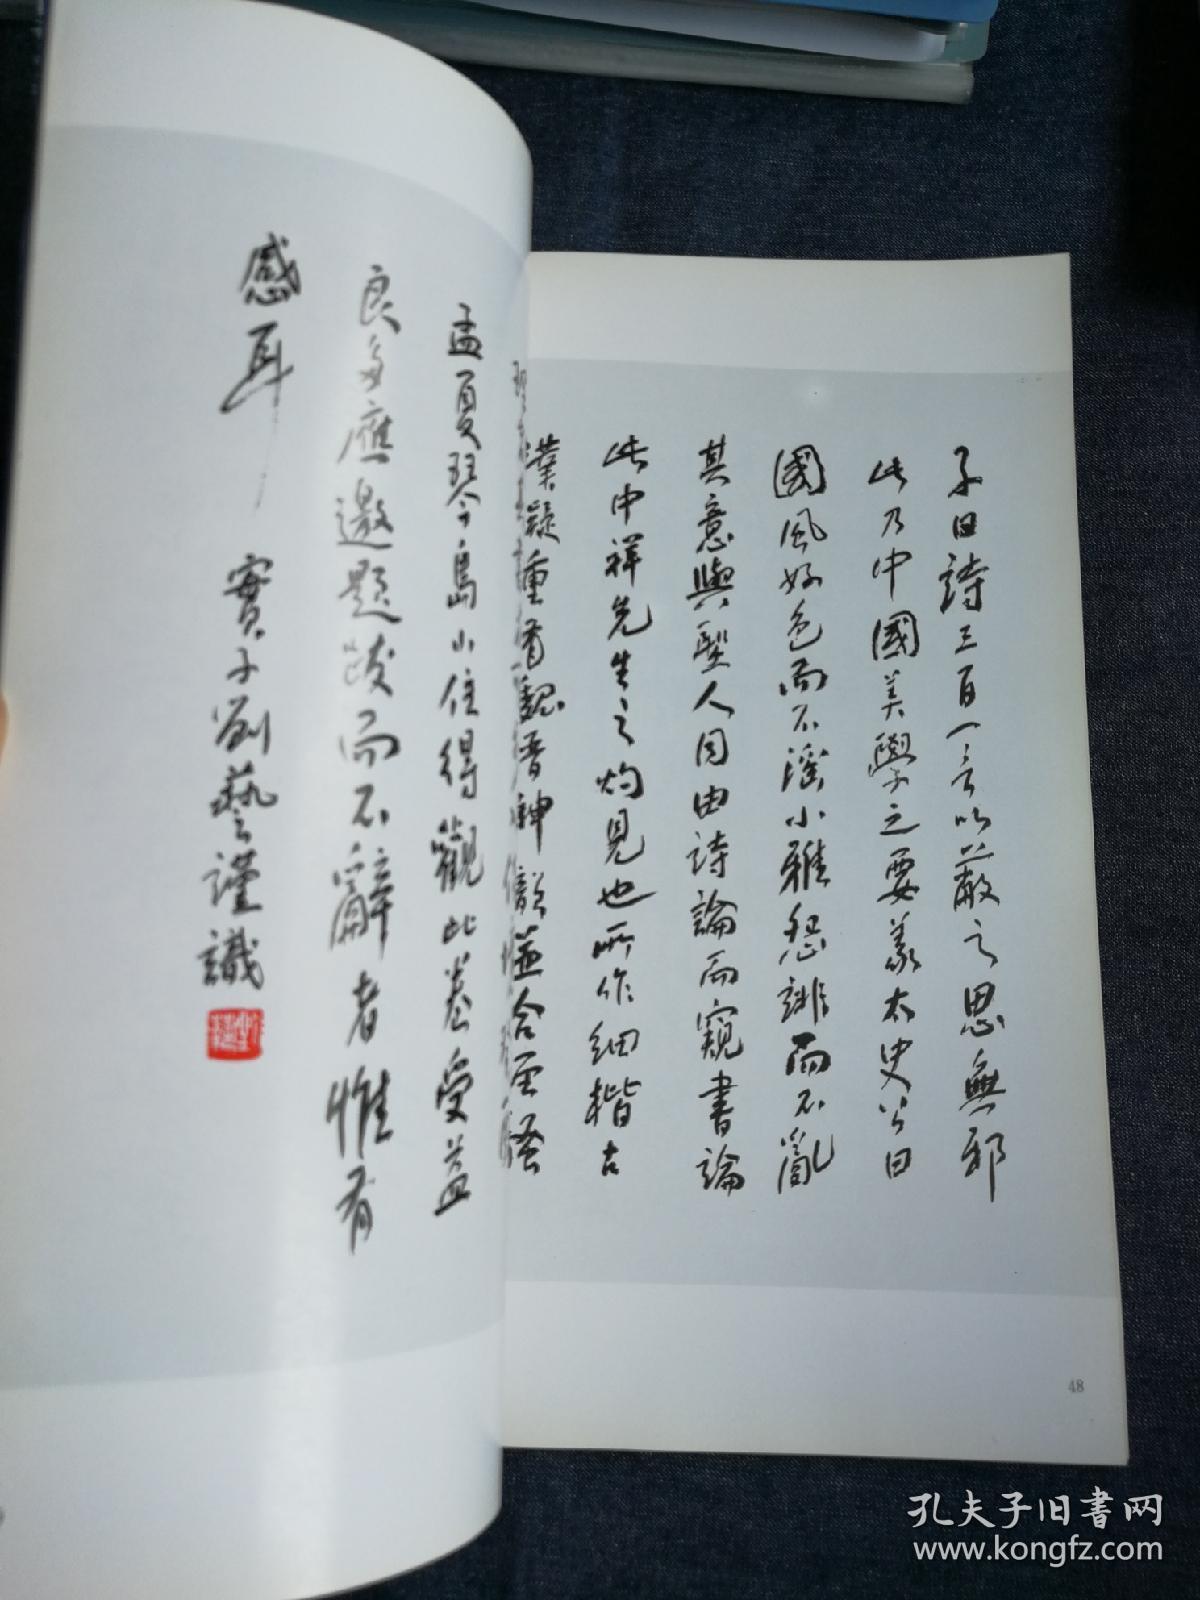 子曰詩三百一言以蔽之思無邪
此乃中國美學之要義太史公曰
國風好色而不淫小雅怨誹而不亂
其意與聖人同由詩論而窺書論
此中祥先生之灼見也所作細楷古
樸凝重
孟夏琴島小住得觀此卷受益
良多應邀題跋而不辭者惟有
感耳
實子劉藝謹識
48
孔夫子旧書网
www.kongfz.com